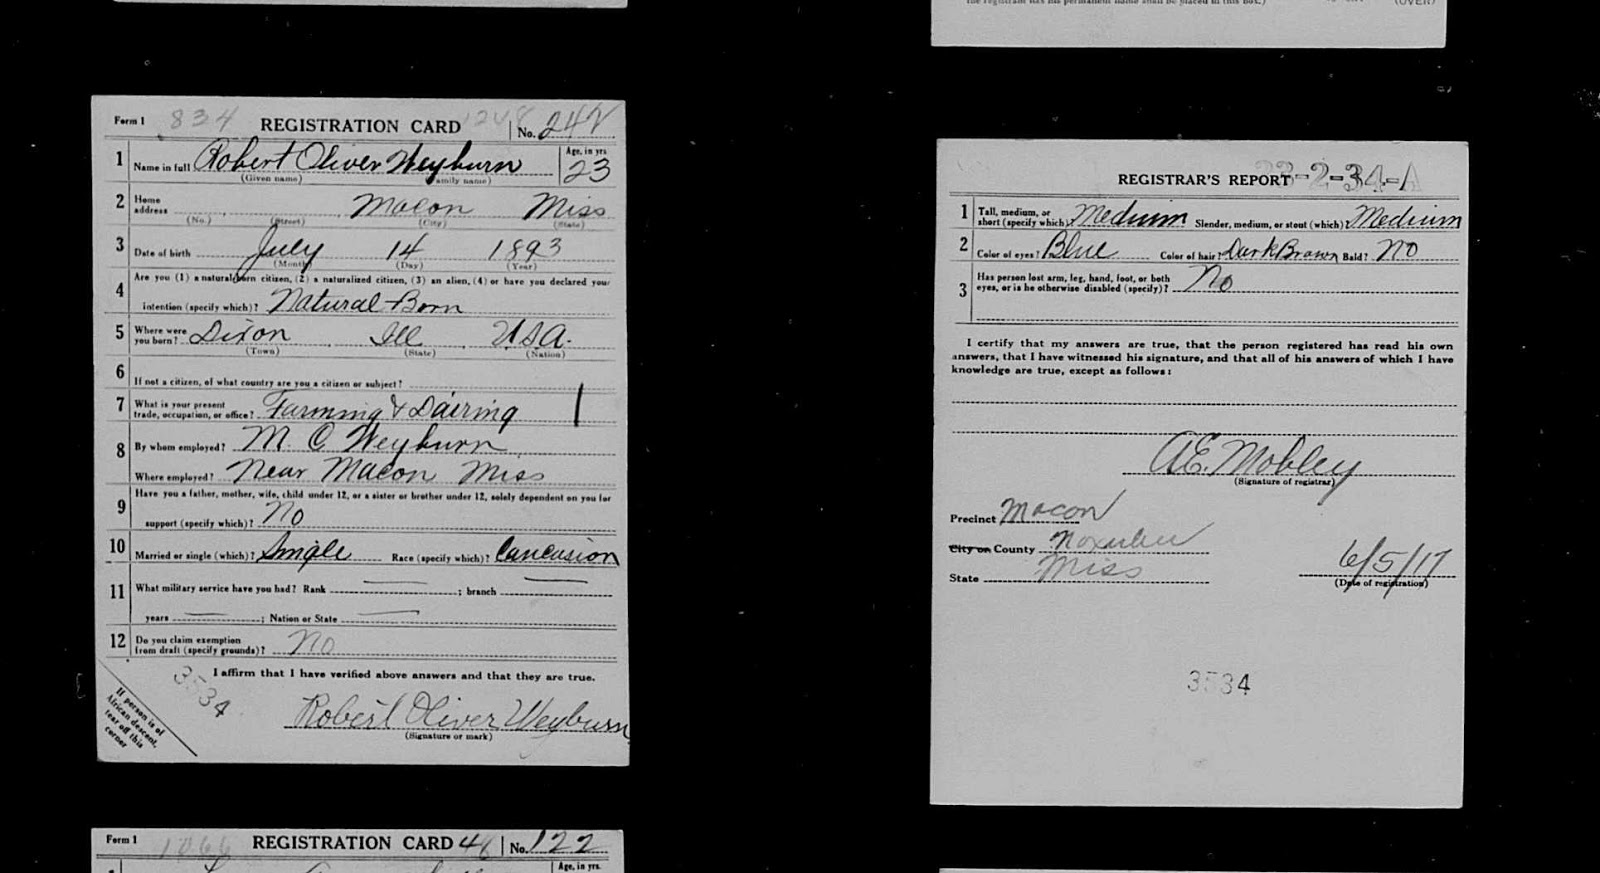 (OVER)
Form 1 834 REGISTRATION CARD 1248 No. 242
1 Name in full Robert Oliver Weyburn Age, in yrs. 23
(Given name) (Family name)
2 Home address Macon Miss
(No.) (Street) (City) (State)
3 Date of birth July 14 1893
(Month) (Day) (Year)
4 Are you (1) a natural-born citizen, (2) a naturalized citizen, (3) an alien, (4) or have you declared your
intention (specify which)? Natural-Born
5 Where were you born? Dixon Ill USA.
(Town) (State) (Nation)
6 If not a citizen, of what country are you a citizen or subject?
7 What is your present trade, occupation, or office? Farming & Dairing
8 By whom employed? M. C Weyburn
Where employed? Near Macon Miss
9 Have you a father, mother, wife, child under 12, or a sister or brother under 12, solely dependent on you for
support (specify which)? No
10 Married or single (which)? Single Race (specify which)? Caucasion
11 What military service have you had? Rank ; branch
years ; Nation or State
12 Do you claim exemption from draft (specify grounds)? No
I affirm that I have verified above answers and that they are true.
3534
Robert Oliver Weyburn
(Signature or mark)
If person is of
African descent,
tear off this
corner
Form 1 1066 REGISTRATION CARD 46 No. 122
Age, in yrs.
REGISTRAR'S REPORT 23-2-34-A
1 Tall, medium, or short (specify which)? Medium Slender, medium, or stout (which)? Medium
2 Color of eyes? Blue Color of hair? Dark Brown Bald? No
3 Has person lost arm, leg, hand, foot, or both
eyes, or is he otherwise disabled (specify)? No
I certify that my answers are true, that the person registered has read his own
answers, that I have witnessed his signature, and that all of his answers of which I have
knowledge are true, except as follows:
A.E. Mobley
(Signature of registrar)
Precinct Macon
City or County Noxubee
State Miss 6/5/17
(Date of registration)
3534